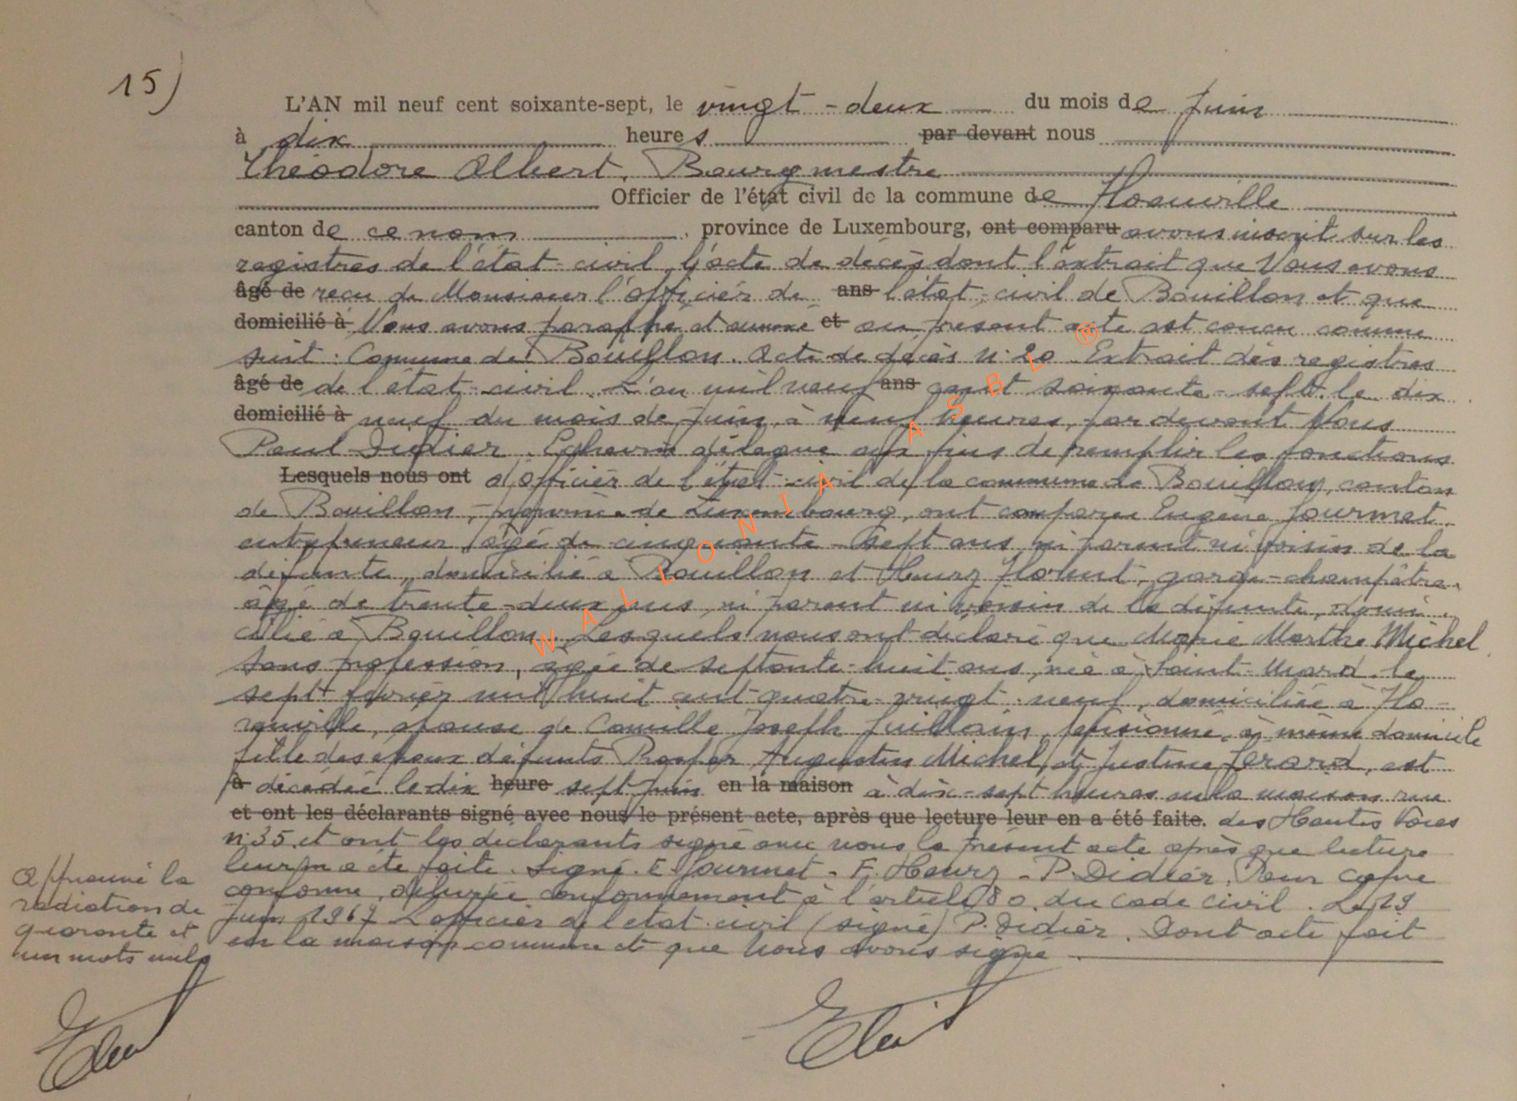 15)
L'AN mil neuf cent soixante-sept, le vingt-deux du mois de juin
à dix heures par devant nous
Théodore Albert, Bourgmestre
Officier de l'état civil de la commune de
canton de ce nom, province de Luxembourg, ont comparu avons inscrit sur les
registres de l'état-civil, l'acte de décès dont l'extrait que Nous avons
âgé de reçu de Monsieur l'officier de ans l'état-civil de Bouillon et que
domicilié à Nous avons paraphé et annexé et au présent acte est conçu comme
suit : Commune de Bouillon. Acte de décès n° 20 Extrait des registres
âgé de de l'état-civil. L'an mil neuf ans cent soixante-sept. le dix
domicilié à neuf du mois de juin, à neuf heures, par devant Nous
Paul Didier, Echevin délégué aux fins de remplir les fonctions
Lesquels nous ont d'officier de l'état-civil de la commune de Bouillon, canton
de Bouillon, province de Luxembourg, ont comparu Eugène Gourmet,
entrepreneur, âgé de cinquante-sept ans, ni parent ni voisin de la
défunte, domicilié à Bouillon et garde-champêtre,
âgé de trente-deux ans, ni parent ni voisin de la défunte, domi-
cilié à Bouillon. Lesquels nous ont déclaré que Marie Marthe Michel
sans profession, âgée de septante-huit ans, née à Saint-Mard le
sept février mil huit cent quatre-vingt-neuf, domiciliée à
épouse de Camille Joseph Guillain, pensionné, à même domicile
fille des époux défunts Prosper Augustin Michel, et Justine Gérard, est
à décédée le dix heure sept juin en la maison à dix-sept heures en la maison rue
et ont les déclarants signé avec nous le présent acte, après que lecture leur en a été faite. des Hautes Voies
n° 35, et ont les déclarants signé avec nous le présent acte après que lecture
leur en a été faite. Signé. E. Gourmet - F. - P. Didier. Pour copie
conforme, délivrée conformément à l'article 80 du code civil. Le 19
juin 1967 L'officier de l'état civil (signé) P. Didier. Dont acte fait
en la maison commune et que Nous avons signé
Approuvé la
radiation de
quarante et
un mots nuls
WALLONIA ASBL ®